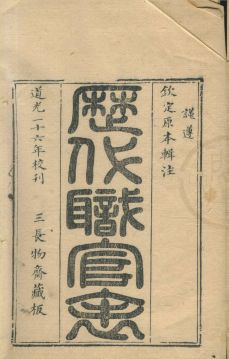 謹遵
欽定原本輯注
歷代職官志
道光二十六年校刊
三長物齋藏板